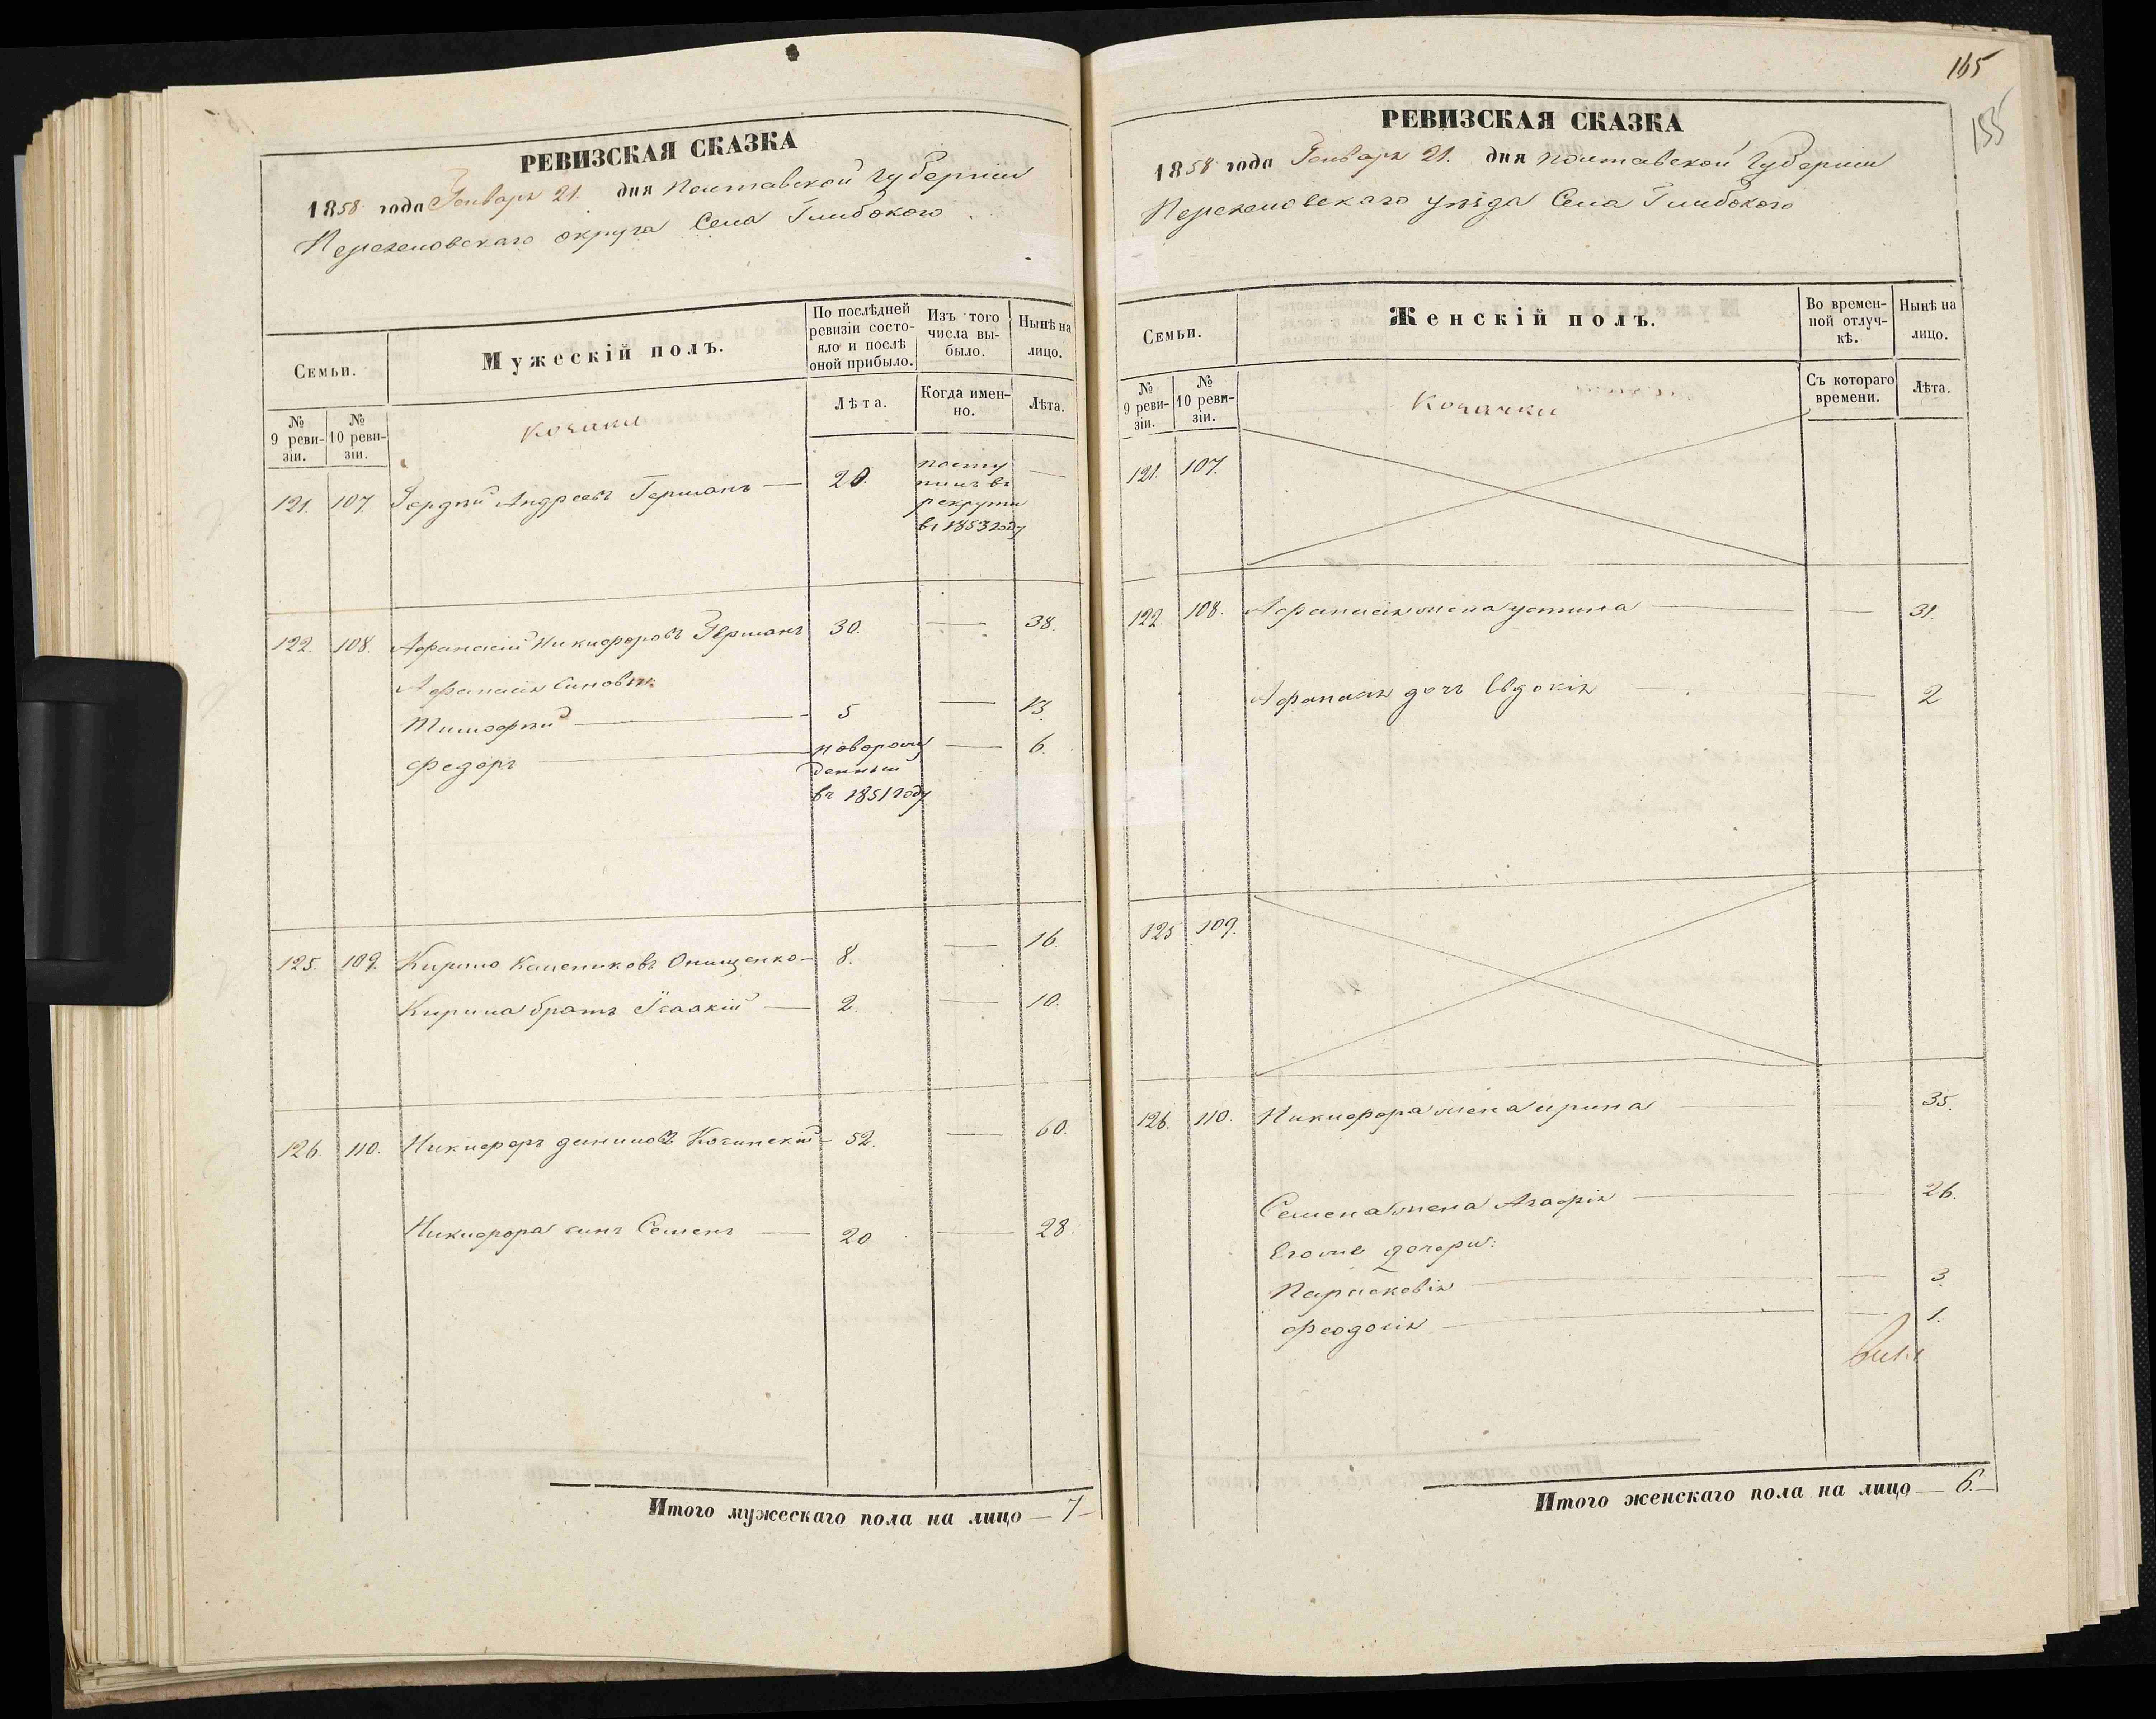 РЕВИЗСКАЯ СКАЗКА
1858 года Генваря 21. дня Полтавской Губерніи
округа Села Глибокого
Семьи.
Мужескій полъ.
По послѣдней ревизіи состояло и послѣ оной прибыло.
Изъ того числа выбыло.
Нынѣ на лицо.
№ 9 ревизіи.
№ 10 ревизіи.
Козаки
Лѣта.
Когда именно.
Лѣта.
121. 107. Андреевъ Германъ — 20. посту —
пилъ въ
рекруты
въ 1853 году
122. 108. Афанасій Никифоровъ Германъ 30. — 38.
Афанасія Сыновья:
Тимофѣй — 5 — 13.
Федоръ — новорож — 6.
денный
въ 1851 году
125. 109. Кирило Онищенко — 8. — 16.
Кирила братъ Ісаакій — 2. — 10.
126. 110. Никифоръ Даниловъ — 52. — 60.
Никифора сынъ Семенъ — 20 — 28.
Итого мужескаго пола на лицо — 7 —
165
155
РЕВИЗСКАЯ СКАЗКА
1858 года Генваря 21. дня Полтавской Губерніи
уѣзда Села Глибокого
Семьи.
Женскій полъ.
Во временной отлучкѣ.
Нынѣ на лицо.
№ 9 ревизіи.
№ 10 ревизіи.
Козачки
Съ котораго времени.
Лѣта.
121. 107.
122. 108. Афанасія жена Устина — — 31.
Афанасія дочь Евдокія — — 2
125 109.
126. 110. Никифора жена Ирина — — 35.
Семена жена Агафія — — 26.
Егоже дочери:
Парасковія — — 3.
Феодосія — — 1.
Итого женскаго пола на лицо — 6. —